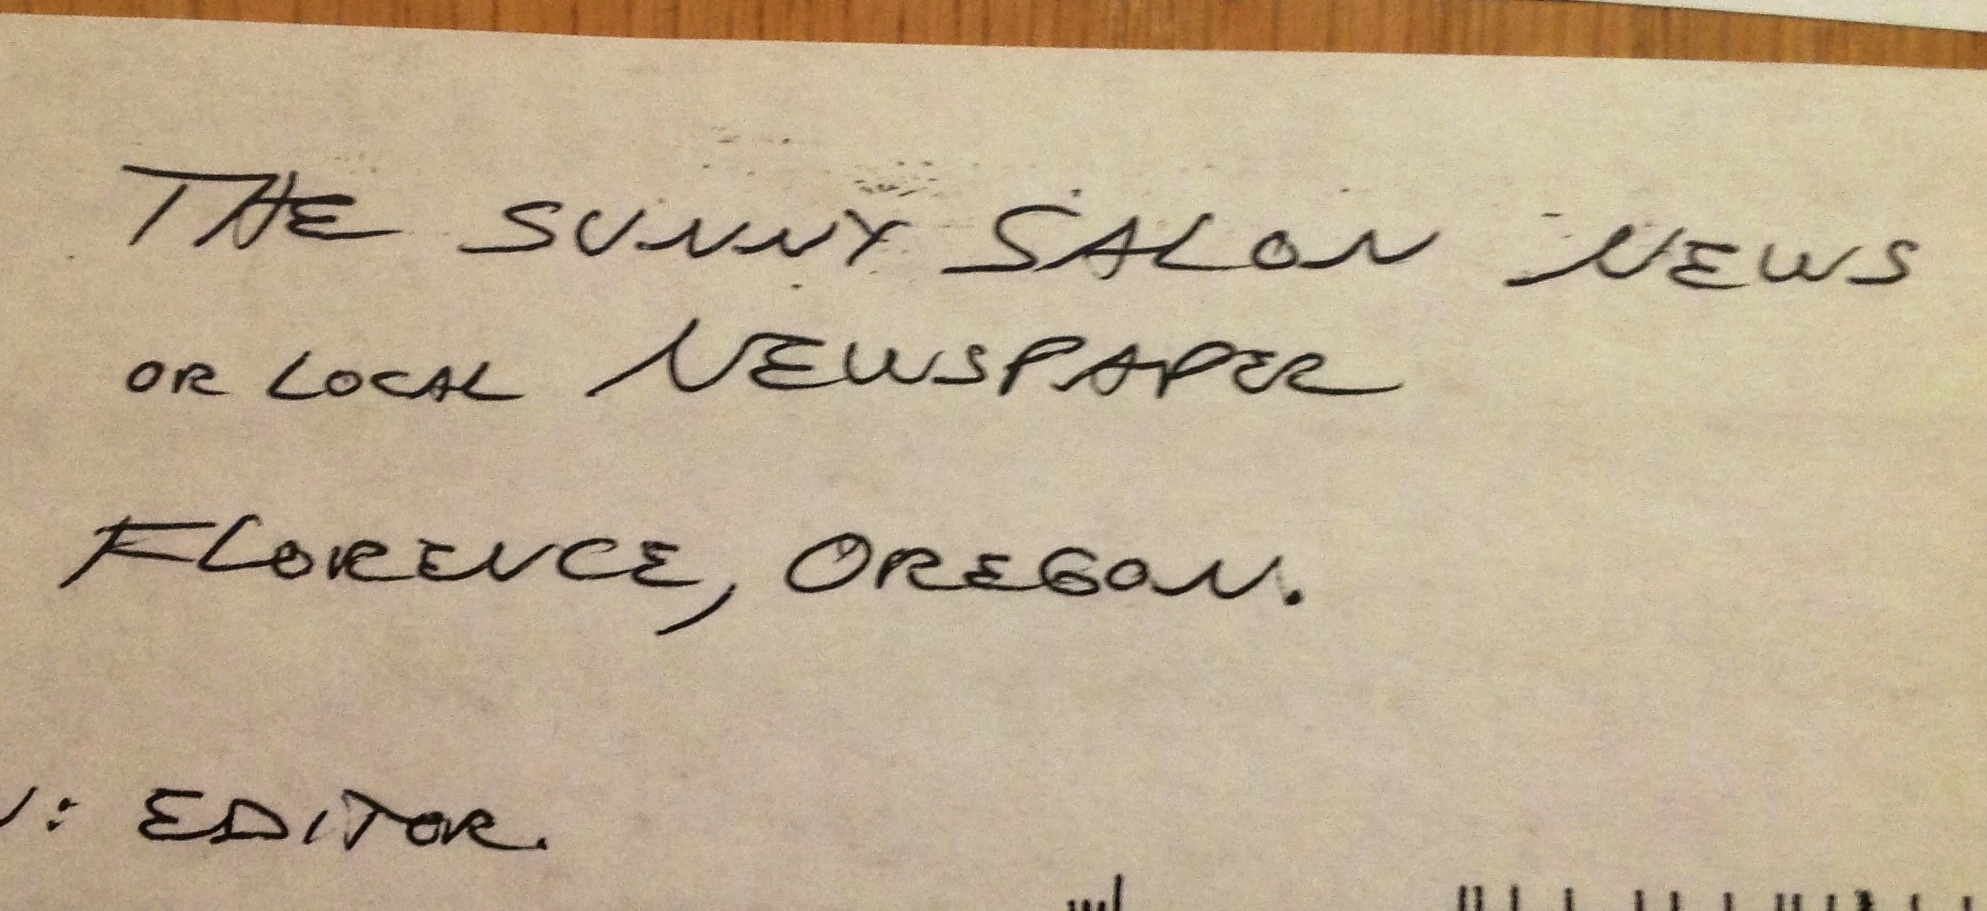 THE SUNNY SALON NEWS
OR LOCAL NEWSPAPER
FLORENCE, OREGON.
: EDITOR.